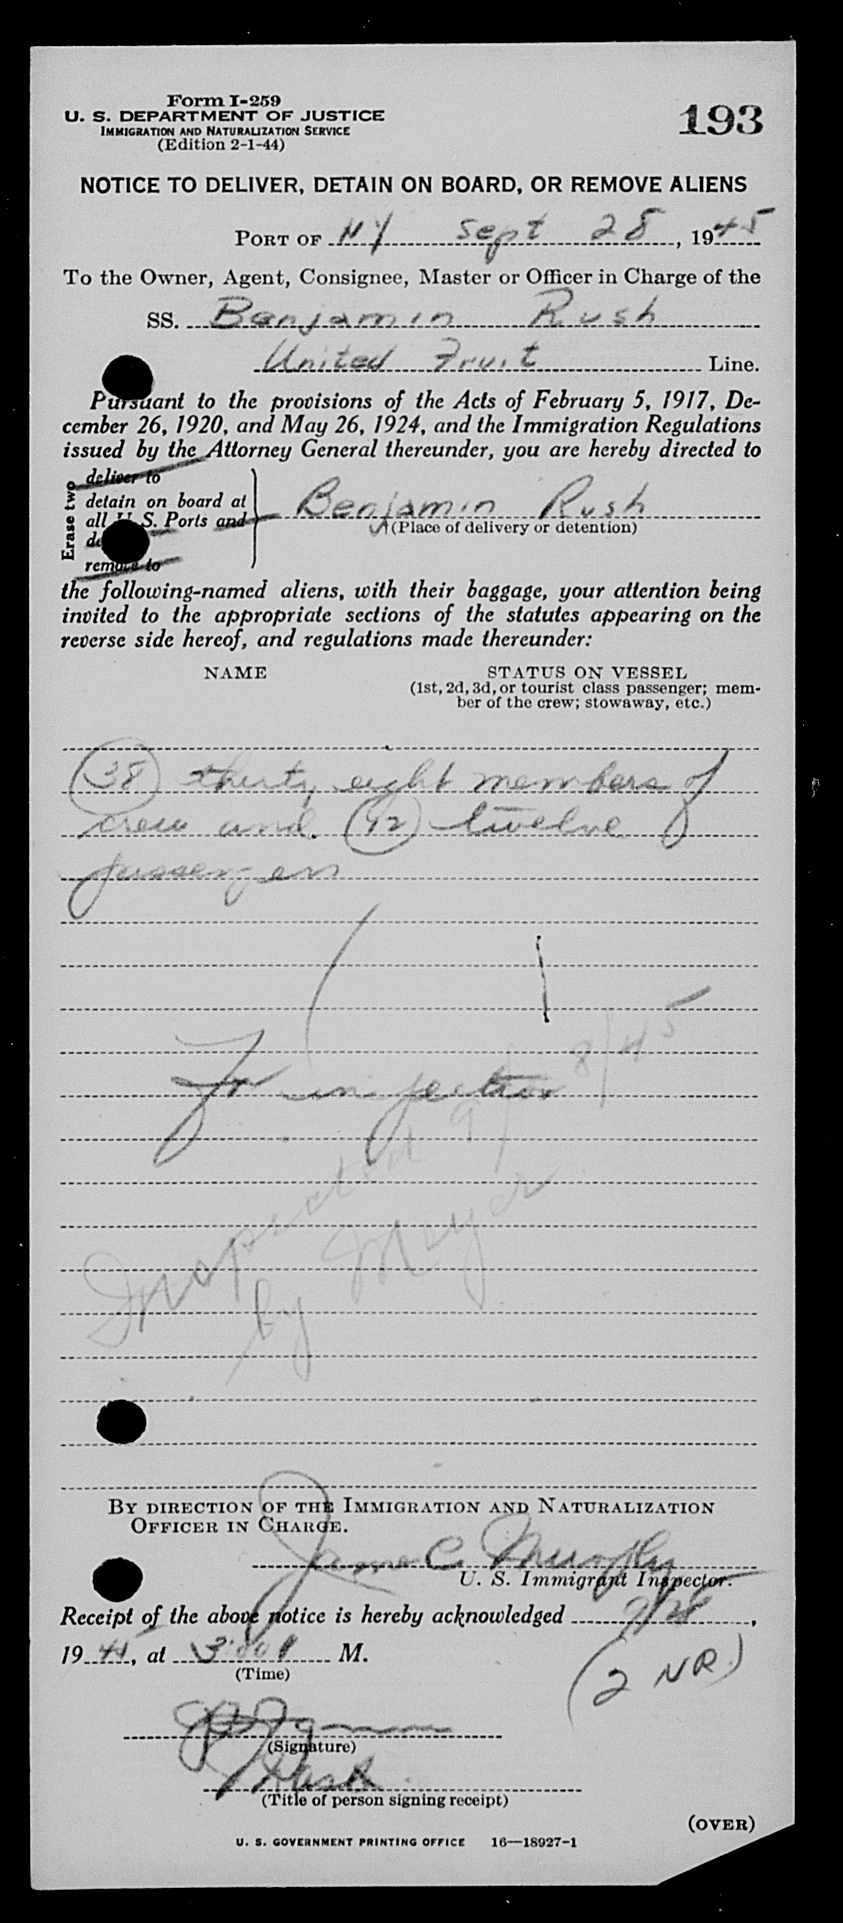 Form I-259
U. S. DEPARTMENT OF JUSTICE
IMMIGRATION AND NATURALIZATION SERVICE
(Edition 2-1-44)
193
NOTICE TO DELIVER, DETAIN ON BOARD, OR REMOVE ALIENS
PORT OF NY Sept 28, 1945
To the Owner, Agent, Consignee, Master or Officer in Charge of the
SS. Benjamin Rush
United Fruit Line.
Pursuant to the provisions of the Acts of February 5, 1917, De-
cember 26, 1920, and May 26, 1924, and the Immigration Regulations
issued by the Attorney General thereunder, you are hereby directed to
Erase two
deliver to
detain on board at
all U. S. Ports and
remove to
Benjamin Rush
(Place of delivery or detention)
the following-named aliens, with their baggage, your attention being
invited to the appropriate sections of the statutes appearing on the
reverse side hereof, and regulations made thereunder:
NAME
STATUS ON VESSEL
(1st, 2d, 3d, or tourist class passenger; mem-
ber of the crew; stowaway, etc.)
(38) thirty eight members of
crew and (12) twelve
passengers
For inspection
Inspected 9/8/45
by Meyer
BY DIRECTION OF THE IMMIGRATION AND NATURALIZATION
OFFICER IN CHARGE.
James C. Murphy
U. S. Immigrant Inspector.
Receipt of the above notice is hereby acknowledged 9/28,
1945, at 3:00 P M.
(Time)
(2 NR)
(Signature)
(Title of person signing receipt)
(OVER)
U. S. GOVERNMENT PRINTING OFFICE 16—18927-1